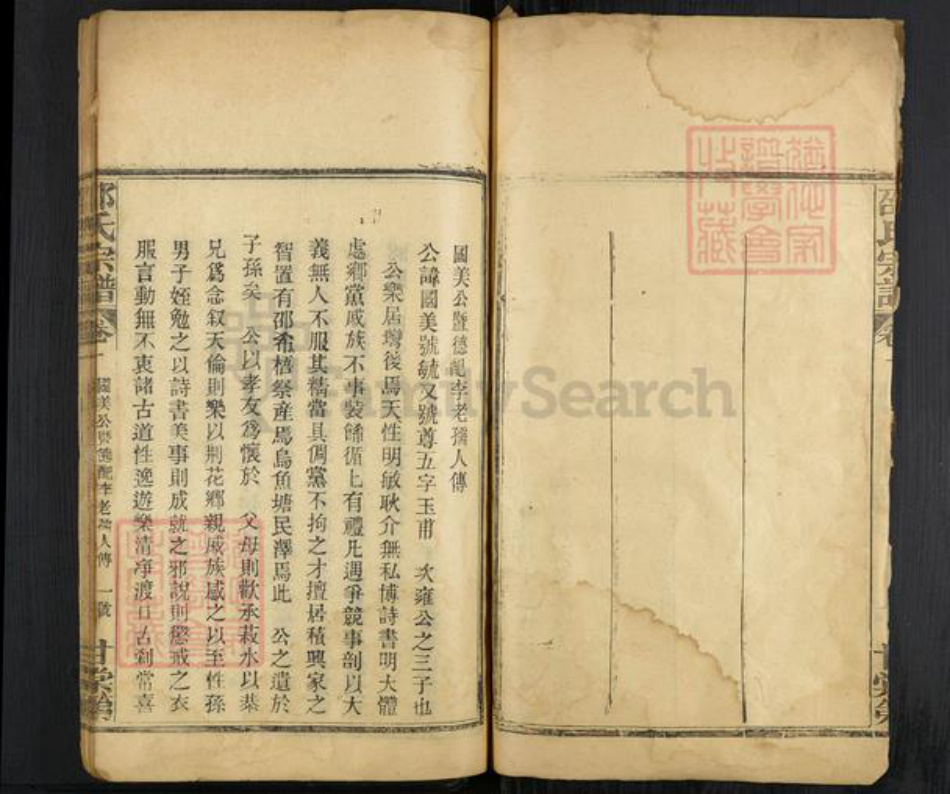 邵氏宗譜
卷
甘棠第
國美公暨德配李老孺人傳
公諱國美號毓又號尊五字玉甫 次雍公之三子也
公樂居灣後焉天性明敏耿介無私博詩書明大體
處鄉黨戚族不事裝飾循上有禮凡遇爭競事剖以大
義無人不服其精當具倜黨不拘之才擅居積興家之
智置有邵希梧祭産焉烏魚塘民澤焉此 公之遺於
子孫矣 公以孝友爲懷於 父母則歡承菽水以恭
兄爲念叙天倫則樂以荆花鄉親戚族感之以至性孫
男子姪勉之以詩書美事則成就之邪說則懲戒之衣
服言動無不衷諸古道性逸遊樂清净渡口古剎常喜
邵氏宗譜
卷一
國美公暨德配李老孺人傳
一號
甘棠第
FamilySearch